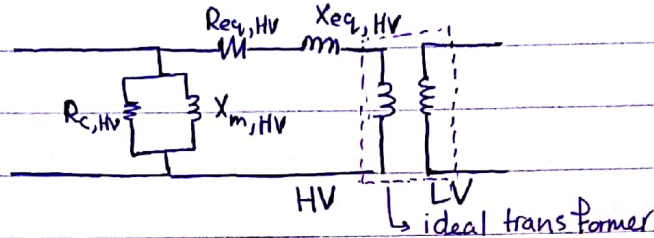 Req,HV Xeq,HV
Rc,HV Xm,HV
HV LV
ideal transformer